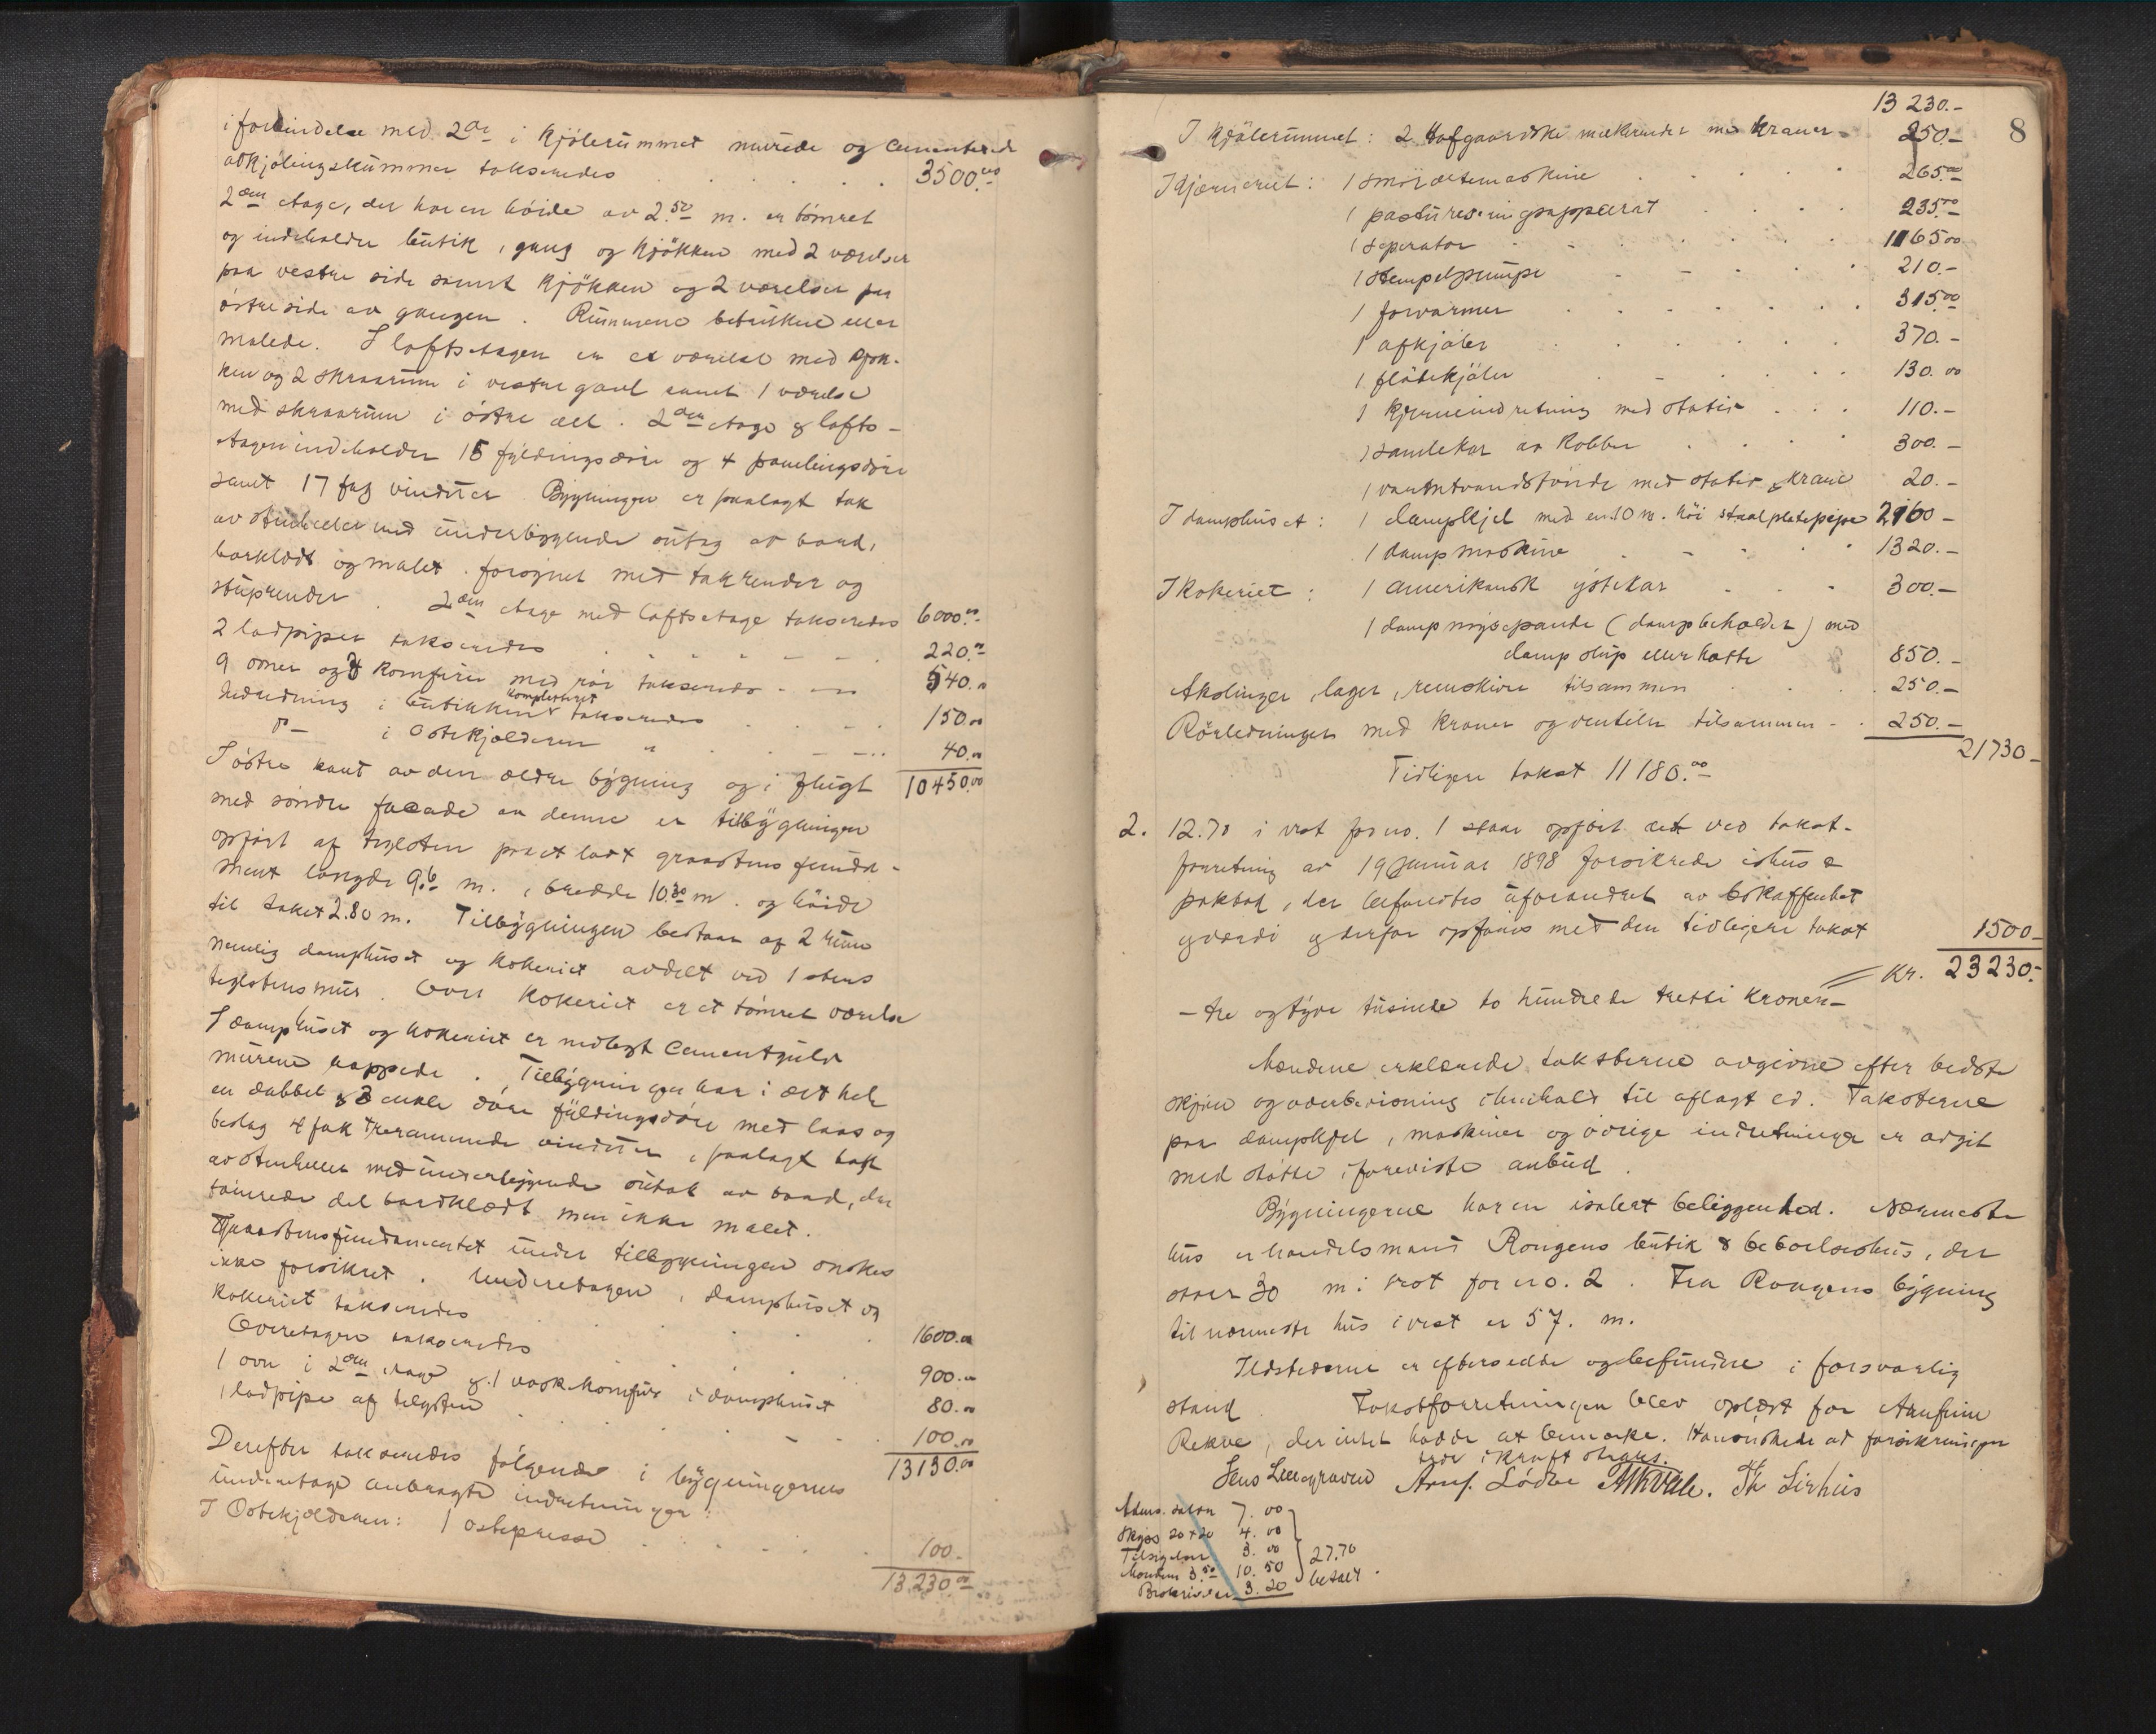 i forbindelse med 2de i kjölerummet murede og cementerede
avkjölingskummer takseredes . . . . . . 3500.00
2den etage, der har en höide av 2.50 m. er tömret
og indeholder butik, gang og kjökken med 2 værelser
paa vestre side samt kjökken og 2 værelser paa
östre side av gangen. Rummene betrukne eller
malede. I loftsetagen er et værelse med kjök-
ken og 2 skraarum i vestre gavl samt 1 værelse
med skraarum i östre del. 2den etage & lofts-
etagen indeholder 15 fyldingsdöre og 4 panelingsdöre
samt 17 fag vinduer. Bygningen er paalagt tak
av stenheller med underliggende sutag av bord,
bordklædt og malet. forsynet med takrender og
stuprender. 2den etage med loftsetage takseredes 6000.00
2 ladpiper takseredes . . . . . 220.00
9 ovner og 4 komfurer med rör takseredes - - 540.00
Indredning i butikken komplettert takseredes . . . 150.00
do- i Ostekjelderen " . . - - . . 40.00
10450.00
I östre kant av den ældre bygning og i flugt
med söndre facade av denne er tilbygningen
opfört af teglsten paa et lavt graastens funda-
ment længde 9.6 m., bredde 10.30 m. og höide
til taket 2.80 m. Tilbygningen bestaar af 2 rum
nemlig damphuset og kokeriet avdelt ved 1 stens
teglstensmur. Over kokeriet er et tömret værelse
I damphuset og kokeriet er nedlagt cementgulv
murene rappede. Tilbygningen har i det hele
en dobbel & 3 enkle döre fyldingsdöre med laas og
beslag 4 fak trerammede vinduer, paalagt tak
av stenheller med underliggende sutak av bord, den
tömrede del bordklædt men ikke malet.
Graastensfundamentet under tilbygningen önskes
ikke forsikret. Underetagen, damphuset og
kokeriet takseredes . . . . . . 1600.00
Overetagen takseredes . . . . . 900.00
1 ovn i 2den etage & 1 vaskekomfur i damphuset 80.00
1 ladpipe af teglsten . . . - - . 100.00
13130.00
Derefter takseredes fölgende i bygningernes
underetage anbragte indretninger:
I Ostekjelderen: 1 ostepresse . . . . . 100.-
13.230.00
8
13 230.-
I kjölerummet: 2 Hofgaardske melkerender med kraner - 250.-
I kjærneriet: 1 smöræltemaskine . . . . 265.00
1 pastureseringsapparat . . . . 235.00
1 seperator . . . . . . 1165.00
1 stempelpumpe . - - . . 210.-
1 forvarmer . . . . . . 315.00
1 afkjöler . . . . . . 370.-
1 flötekjöler . - . . . . 130.00
1 kjerneindretning med stativ . . . 110.-
1 samlekar av kobber . . . . 300.-
1 varmtvandstönde med stativ & krane 20.-
I damphuset: 1 dampkjel med en 10 m. höi staalplatepipe 2960 -
1 dampmaskine . - - . . 1320.-
I kokeriet: 1 amerikansk ystekar . . - 300.-
1 dampningspande (dampbeholder) med
dampstup eller hatte 850.-
Akslinger, lager, remskiver tilsammen . . . . 250.-
Rörledninger med kraner og ventiler tilsammen - . 250.-
21730 -
Tidligere takst 11180.00
2. 12.70 i vest for no. 1 staar opfört det ved takst-
forretning av 19 januar 1898 forsikrede ishus &
pakbod, der befandtes uforandret av beskaffenhet
og værdi og derfor opföres med den tidligere takst 1500 -
Kr. 23230.-
- tre og tyve tusinde to hundrede tretti kroner -
Mændene erklærede taksterne avgivne efter bedste
skjön og overbevisning i henhold til aflagt ed. Taksterne
paa dampkjel, maskiner og övrige indretninger er avgit
med stötte i foreviste anbud.
Bygningerne har en isolert beliggenhed. Nærmeste
hus er handelsmand Rongens butik & beboelseshus, der
staar 30 m. i vest for no. 2. Fra Rongens bygning
til nærmeste hus i vest er 57. m.
Ildstederne er eftersedde og befundne i forsvarlig
stand. Takstforretningen blev oplæst for Arnfinn
Rekve, der intet hadde at bemerke. Han önskede at forsikringen
trær i kraft straks.
Jens Lillegraven Arnf. Lödve AHvale. Th Lirhus
Adms. salær 7.00
Skyds 20+20 4.00
Tilsigelser 3.00
Mændene 3.50 10.50
Brokriveren 3.20
27.70
betalt.